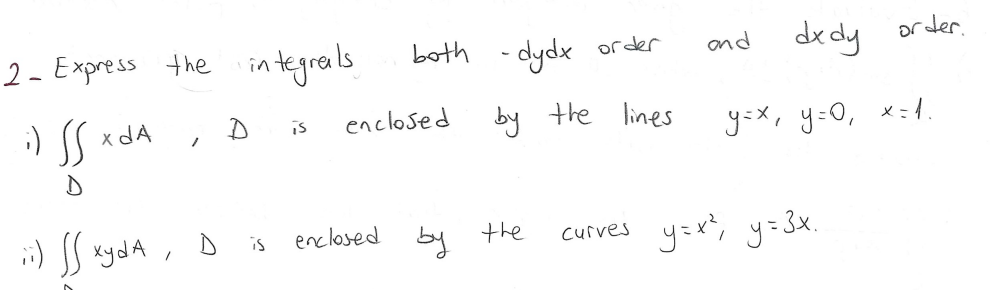 2- Express the integrals both - dydx order and dxdy order.
i) ∬ x dA , D is enclosed by the lines y=x, y=0, x=1.
D
ii) ∬ xydA , D is enclosed by the curves y=x², y=3x.